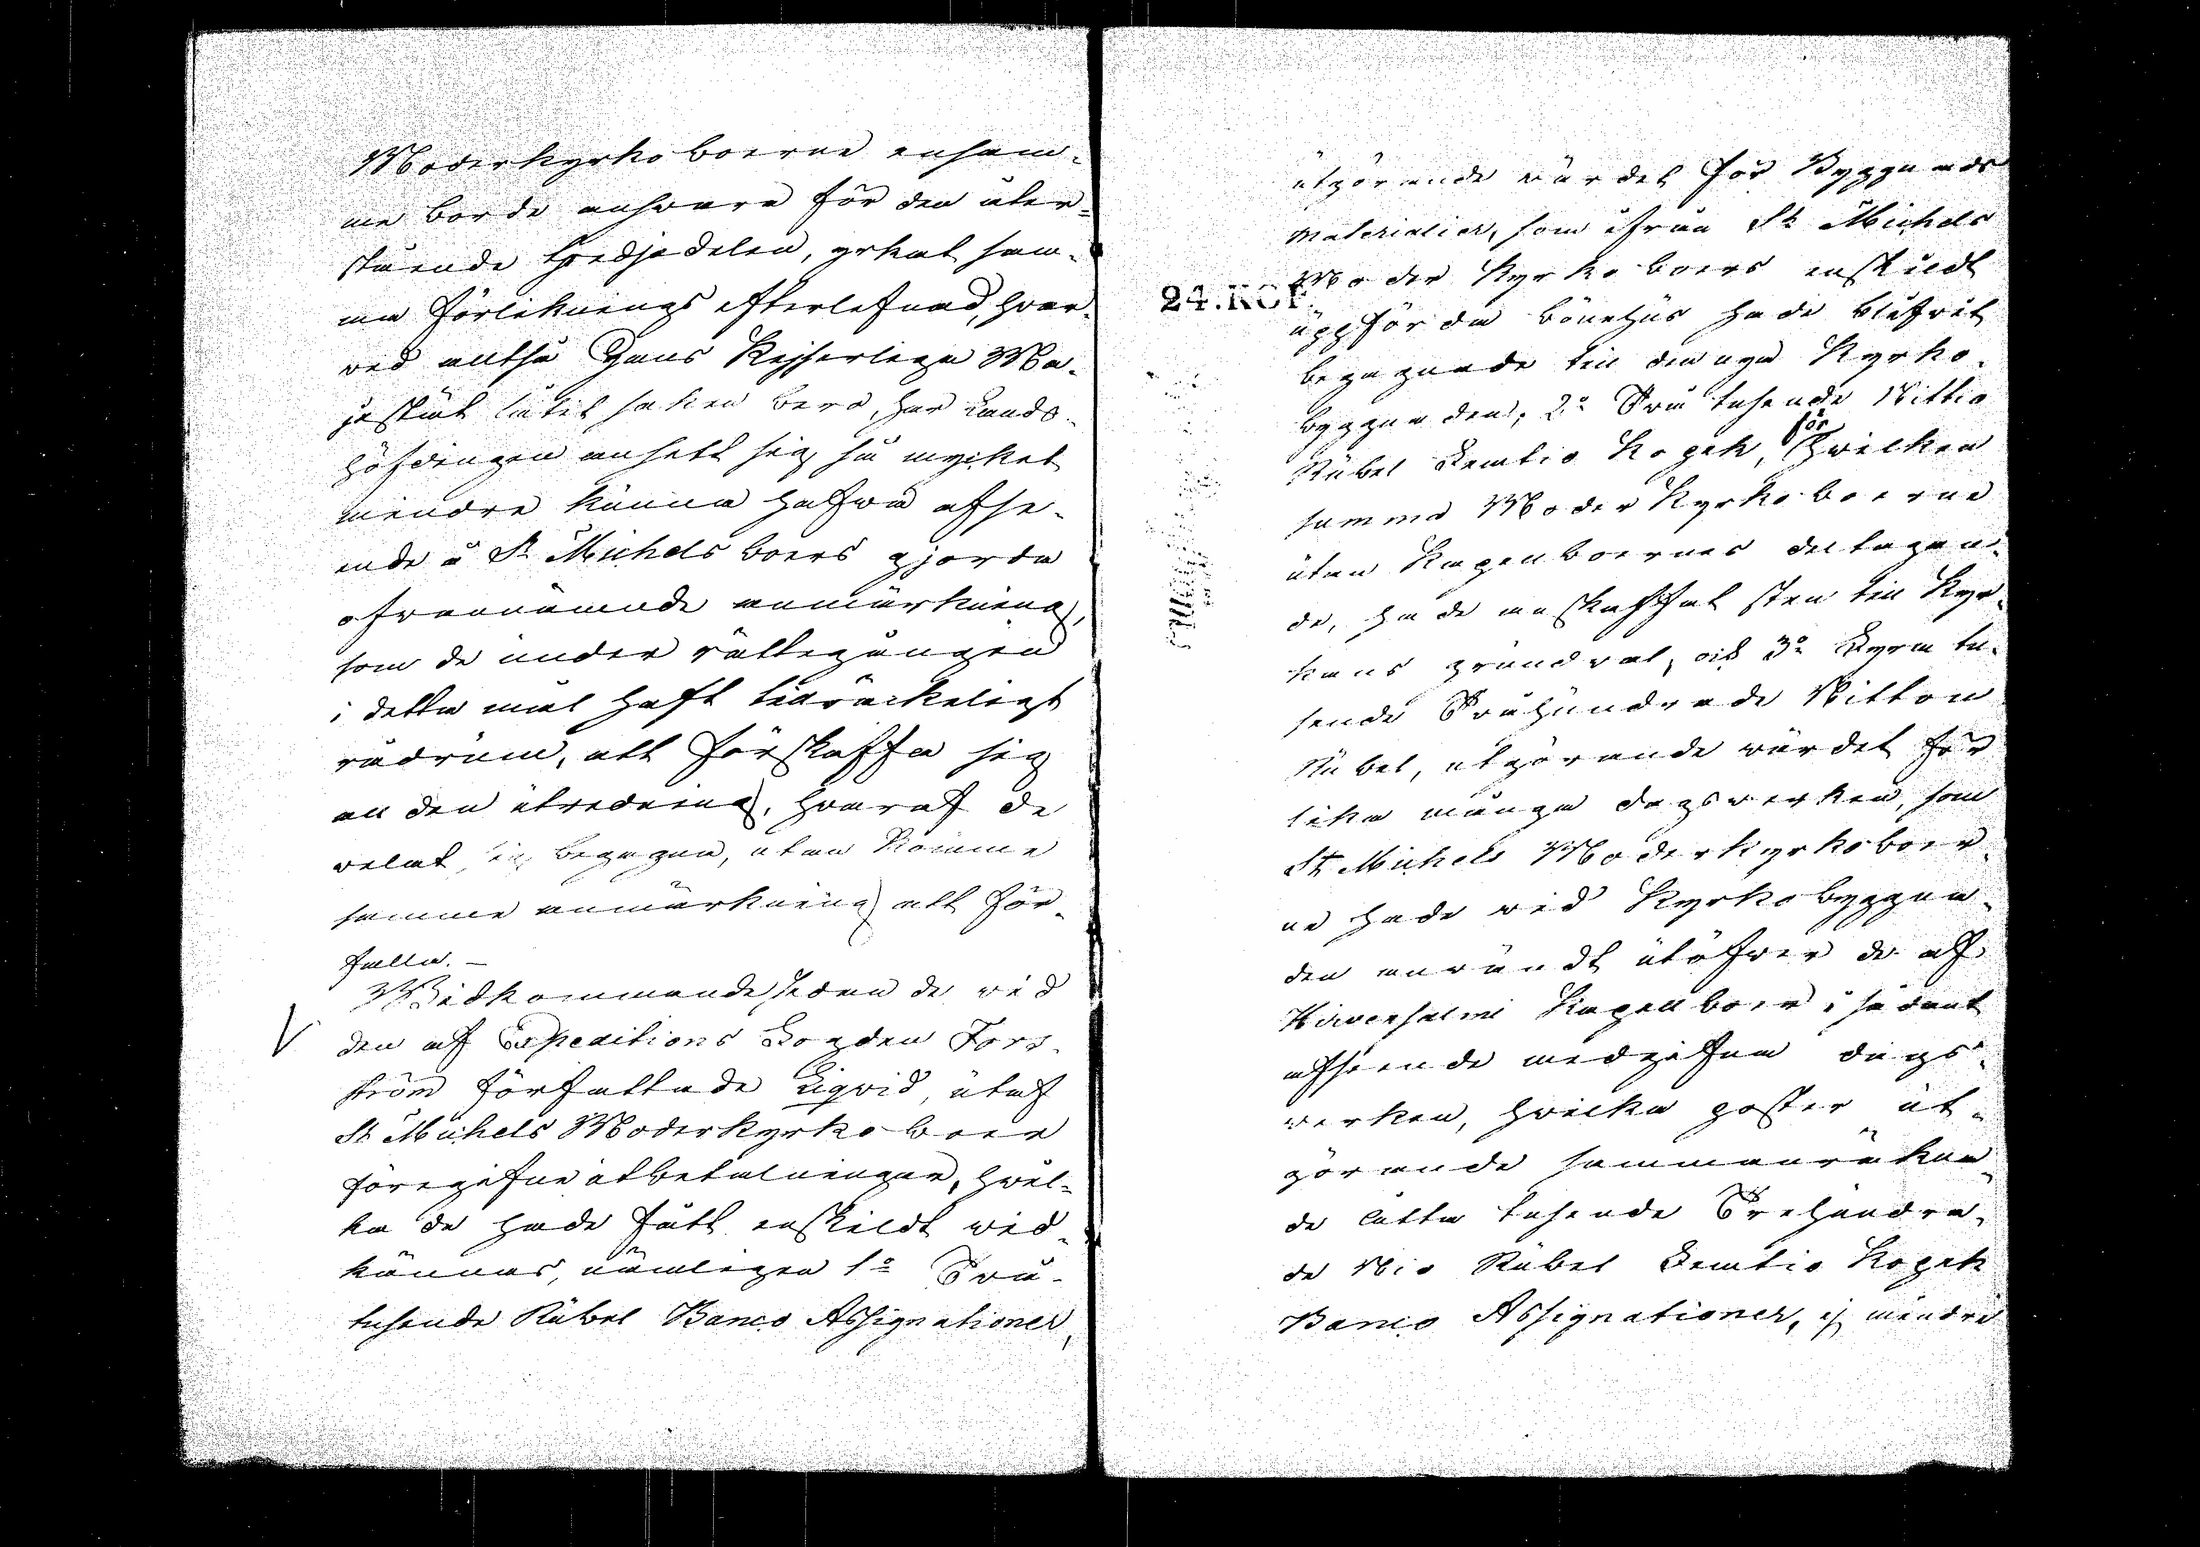 Moderkyrkoboerne ensam-
me borde answara för den åter-
stående tredjedelen, yrkat sam-
ma förliknings efterlefnad, hvar-
wid altså Hans Kejserliga Ma-
jestät låtit saken bero, har Lands-
höfdingen ansett sig så mycket
mindre kunna hafwa afse-
ende å St Michels boers gjorda
ofvannämnde anmärkning,
som de under rättegången
i detta mål haft tillräckeligt
rådrum, att förskaffa sig
all den utredning, hvaraf de
velat sig begagna, utan komme
samma anmärkning att för-
falla. –
Widkommande sedan de wid
den af Expeditions Fogden Fors-
ström författade Liqvid, utaf
St Michels Moderkyrkoboer
föregifne utbetalningar, hvil-
ka de hade fått enskildt wid-
kännas, nämligen 1o Två-
tusende Rubel Banco Assignationer,
utgörande värdet för Byggnads
materialier, som ifrån St Michels
Moder Kyrko boers enskildt
24. KOF
uppförda bönehus hade blifvit
begagnade till den nya Kyrko-
byggnaden; 2o Två tusende Nittio
Rubel Femtio Kopek, för hvilken
summa Moder Kyrko boerne
utan Kapellboernes deltagan-
de, hade anskaffat sten till Kyr-
kans grundval, och 3o Fyra tu-
sende Tvåhundrade Nitton
Rubel, utgörande värdet för
lika många dagsverken, som
St Michels Moderkyrkoboer-
ne hade wid Kyrkobyggna-
den användt utöfver de af
Hirvensalmi Kapellboer i sådant
afseende medgifna dags-
verken, hvilka poster ut-
görande sammanräkna-
de Åtta tusende Trehundra-
de Nio Rubel Femtio Kopek
Banco Assignationer, ej mindre